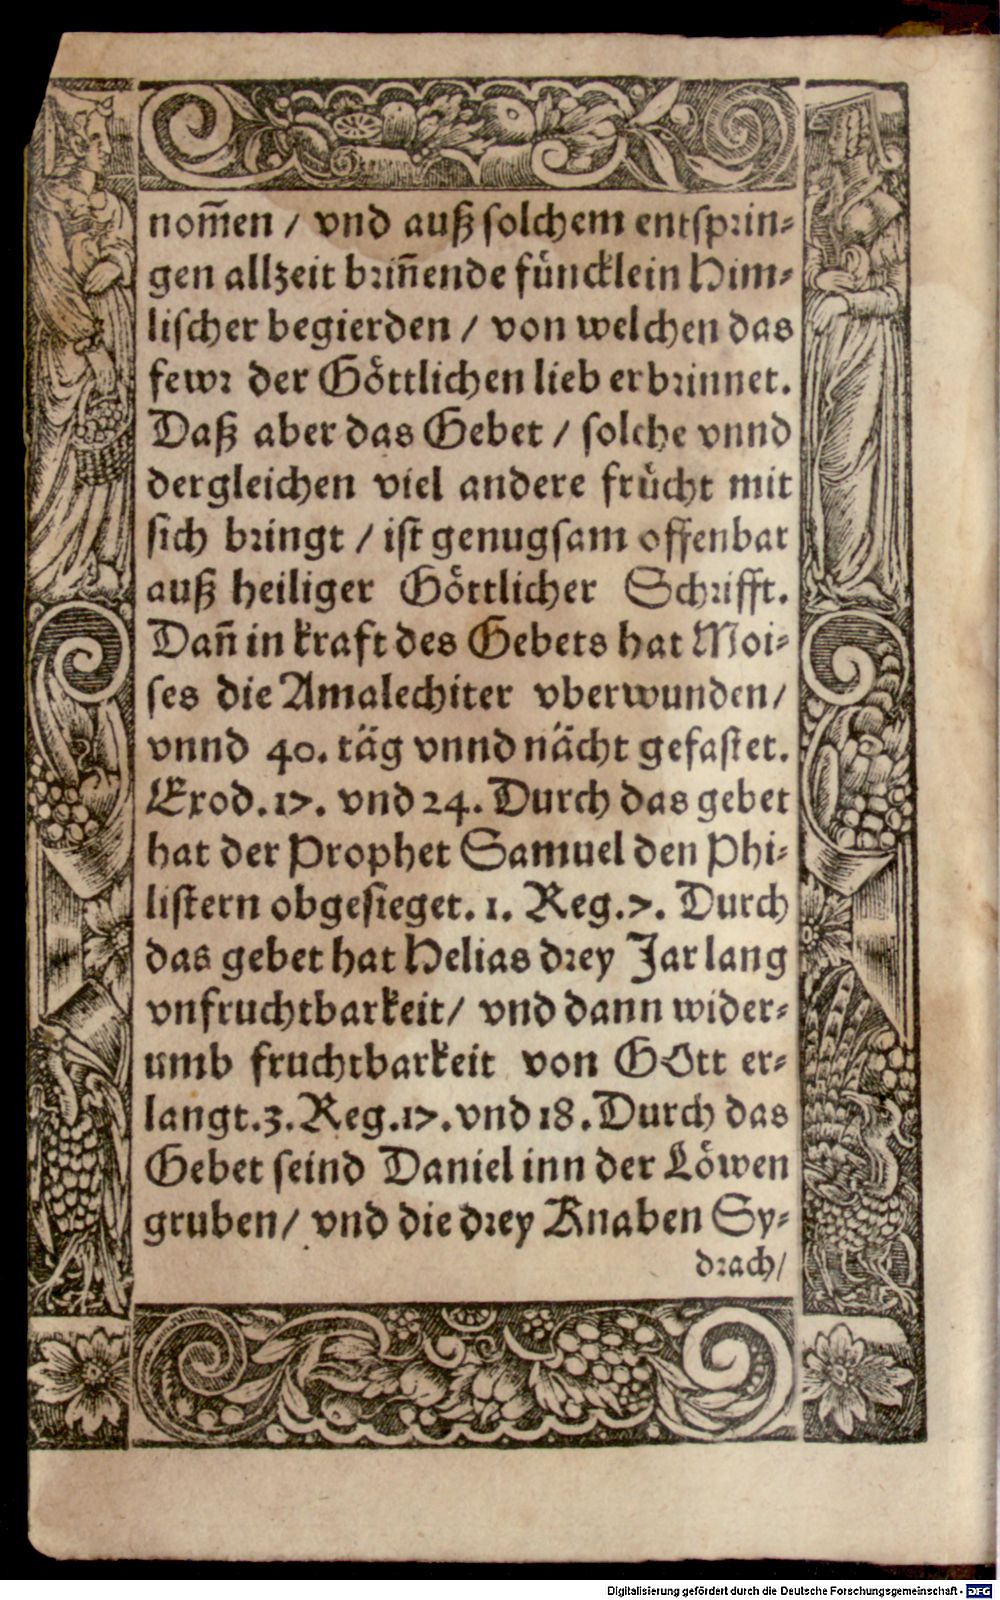 nom̃en / vnd auß solchem entsprin⸗
gen allzeit brin̄ende füncklein Him⸗
lischer begierden / von welchen das
fewr der Göttlichen lieb erbrinnet.
Daß aber das Gebet / solche vnnd
dergleichen viel andere frücht mit
sich bringt / ist genugsam offenbar
auß heiliger Göttlicher Schrifft.
Dan̄ in kraft des Gebets hat Moi⸗
ses die Amalechiter vberwunden /
vnnd 40. täg vnnd nächt gefastet.
Exod. 17. vnd 24. Durch das gebet
hat der Prophet Samuel den Phi⸗
listern obgesieget. 1. Reg. 7. Durch
das gebet hat Helias drey Jar lang
vnfruchtbarkeit / vnd dann wider⸗
umb fruchtbarkeit von GOtt er⸗
langt. 3. Reg. 17. vnd 18. Durch das
Gebet seind Daniel inn der Löwen
gruben / vnd die drey Knaben Sy⸗
drach /
Digitalisierung gefördert durch die Deutsche Forschungsgemeinschaft - DFG